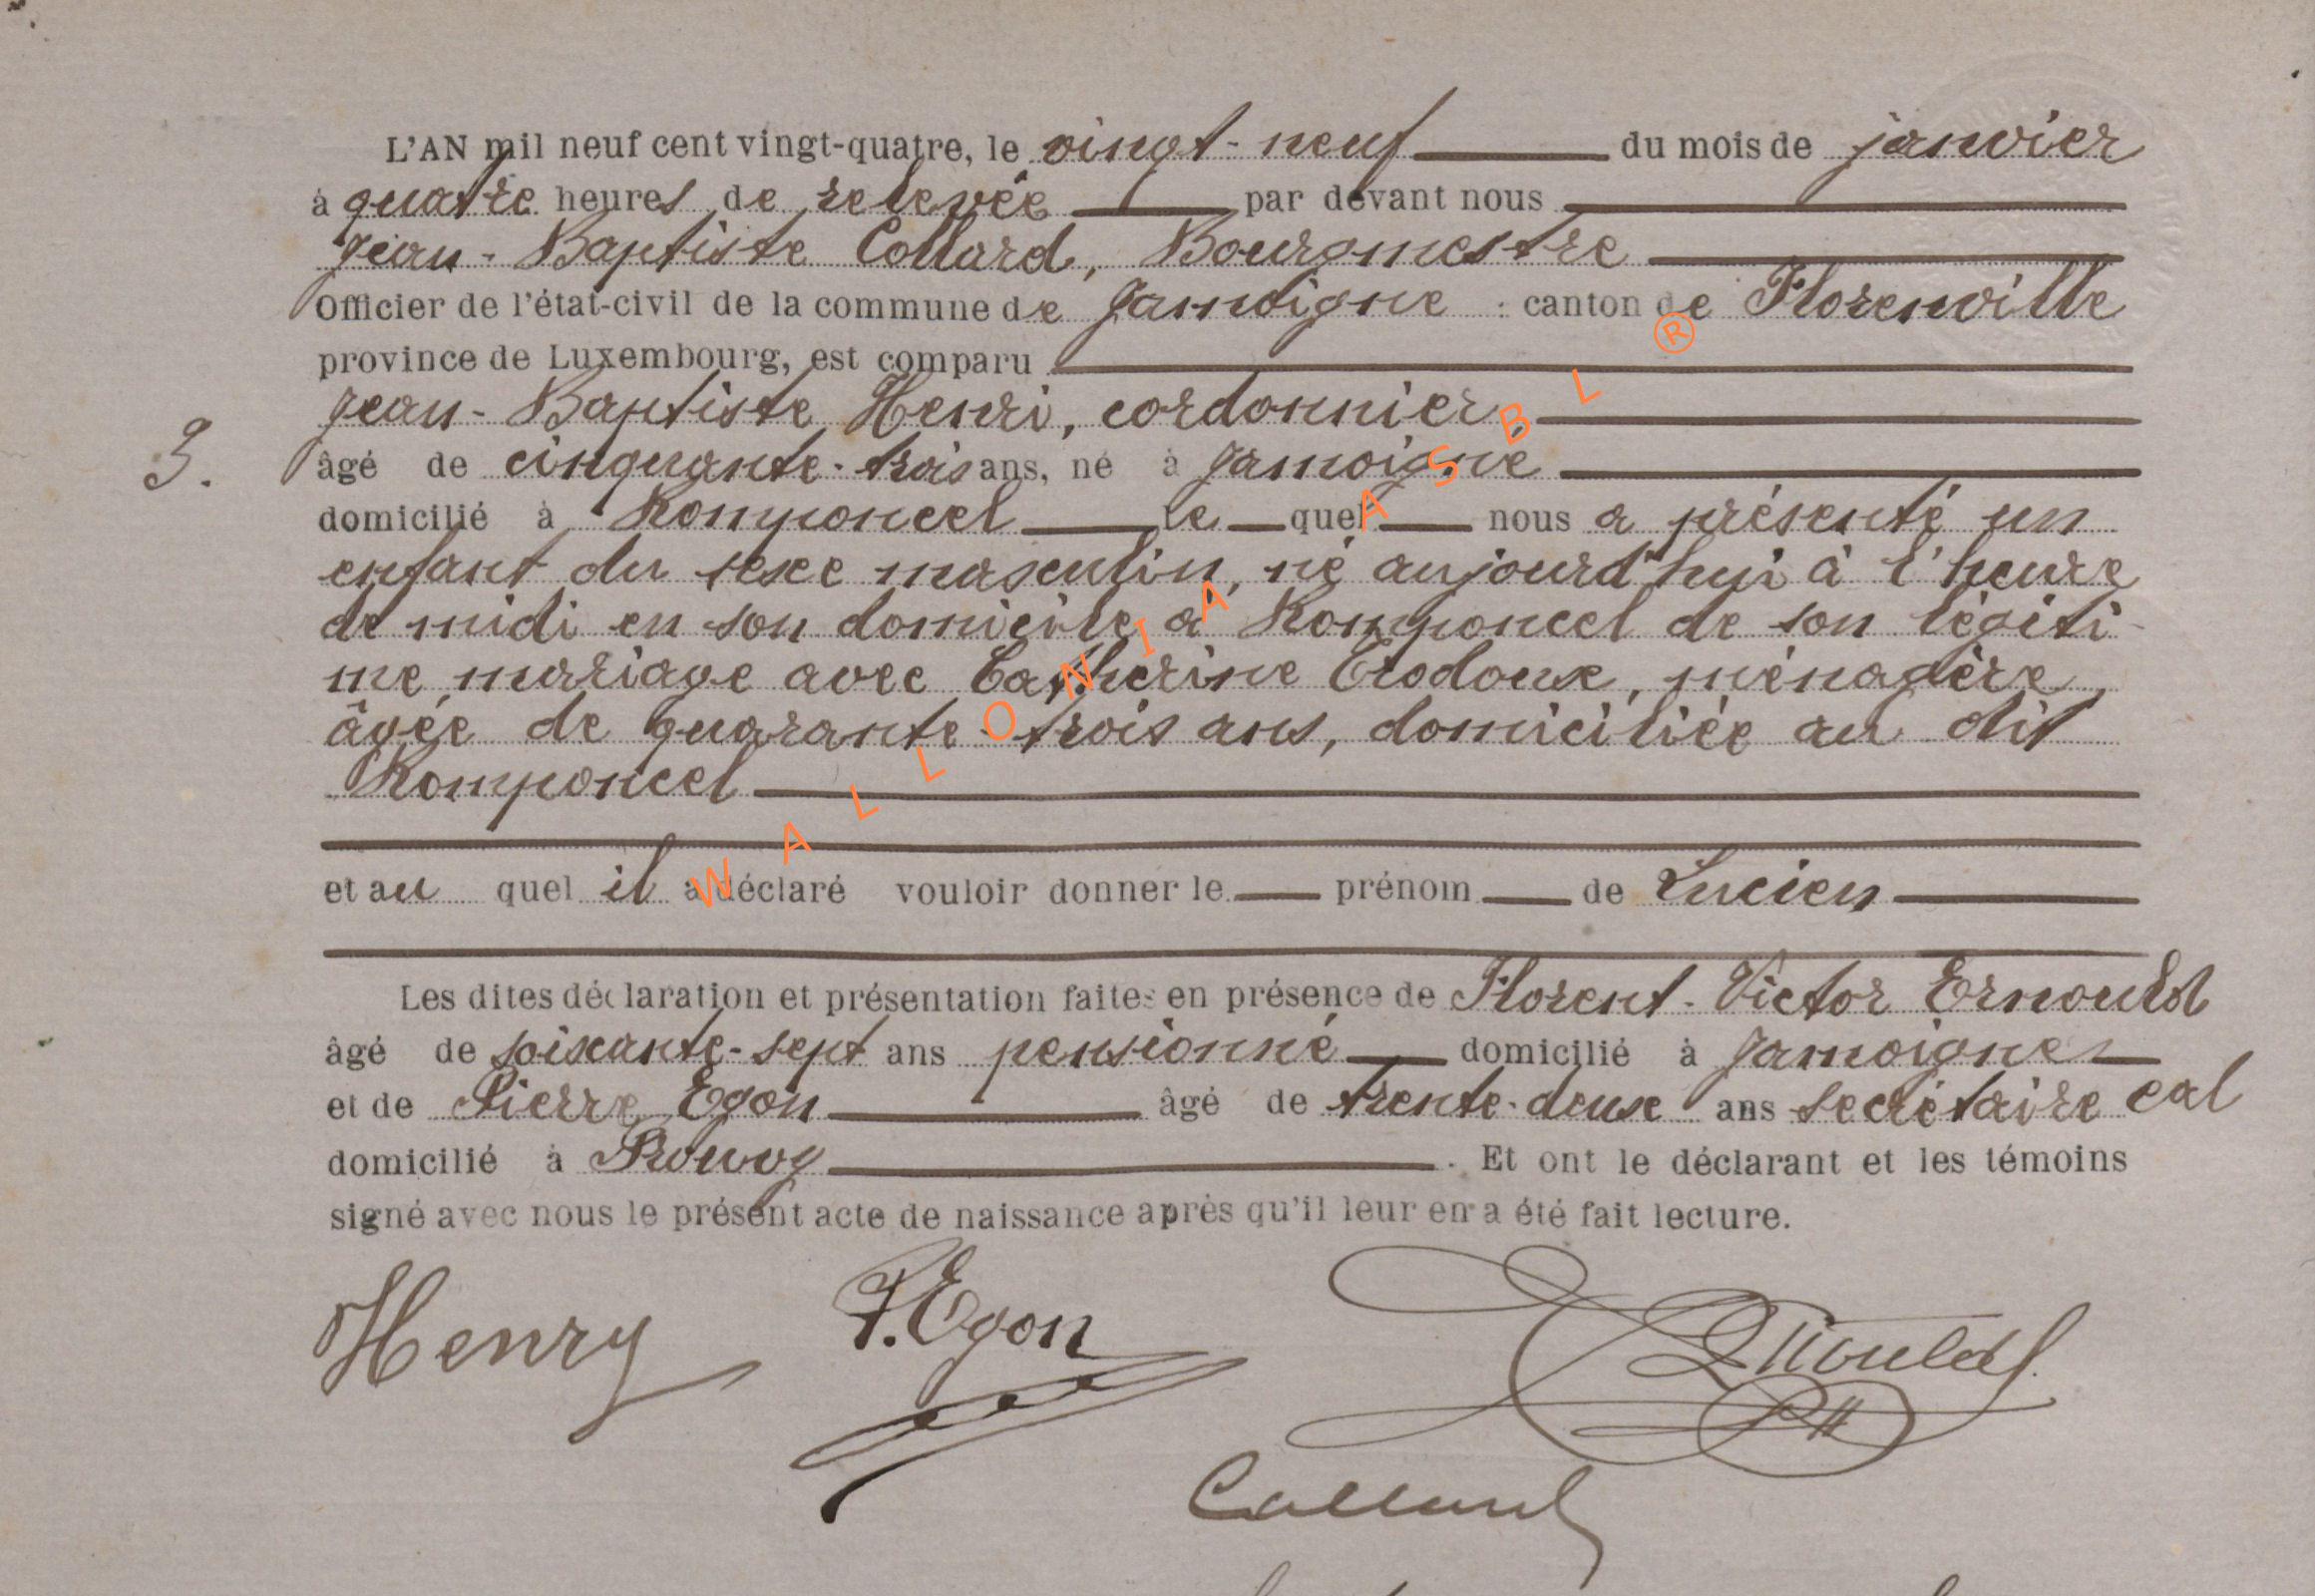 L'AN mil neuf cent vingt-quatre, le vingt-neuf du mois de janvier
à quatre heures de relevée par devant nous
Jean-Baptiste Collard, Bourgmestre
Officier de l'état-civil de la commune de Jamoigne : canton de Florenville
province de Luxembourg, est comparu
Jean-Baptiste Henri, cordonnier
3. âgé de cinquante-trois ans, né à Jamoigne
domicilié à Romponcel le quel nous a présenté un
enfant du sexe masculin, né aujourd'hui à l'heure
de midi en son domicile à Romponcel de son légiti-
me mariage avec Catherine Erodoux, ménagère,
âgée de quarante-trois ans, domiciliée au dit
Romponcel
et au quel il a déclaré vouloir donner le prénom de Lucien
Les dites déclaration et présentation faites en présence de Florent-Victor Ernould
âgé de soixante-sept ans pensionné domicilié à Jamoigne
et de Pierre Egon âgé de trente-deux ans secrétaire cal
domicilié à Prouvy. Et ont le déclarant et les témoins
signé avec nous le présent acte de naissance après qu'il leur en a été fait lecture.
Henry P. Egon Ernould
Collard
WALLONIA ASBL ®